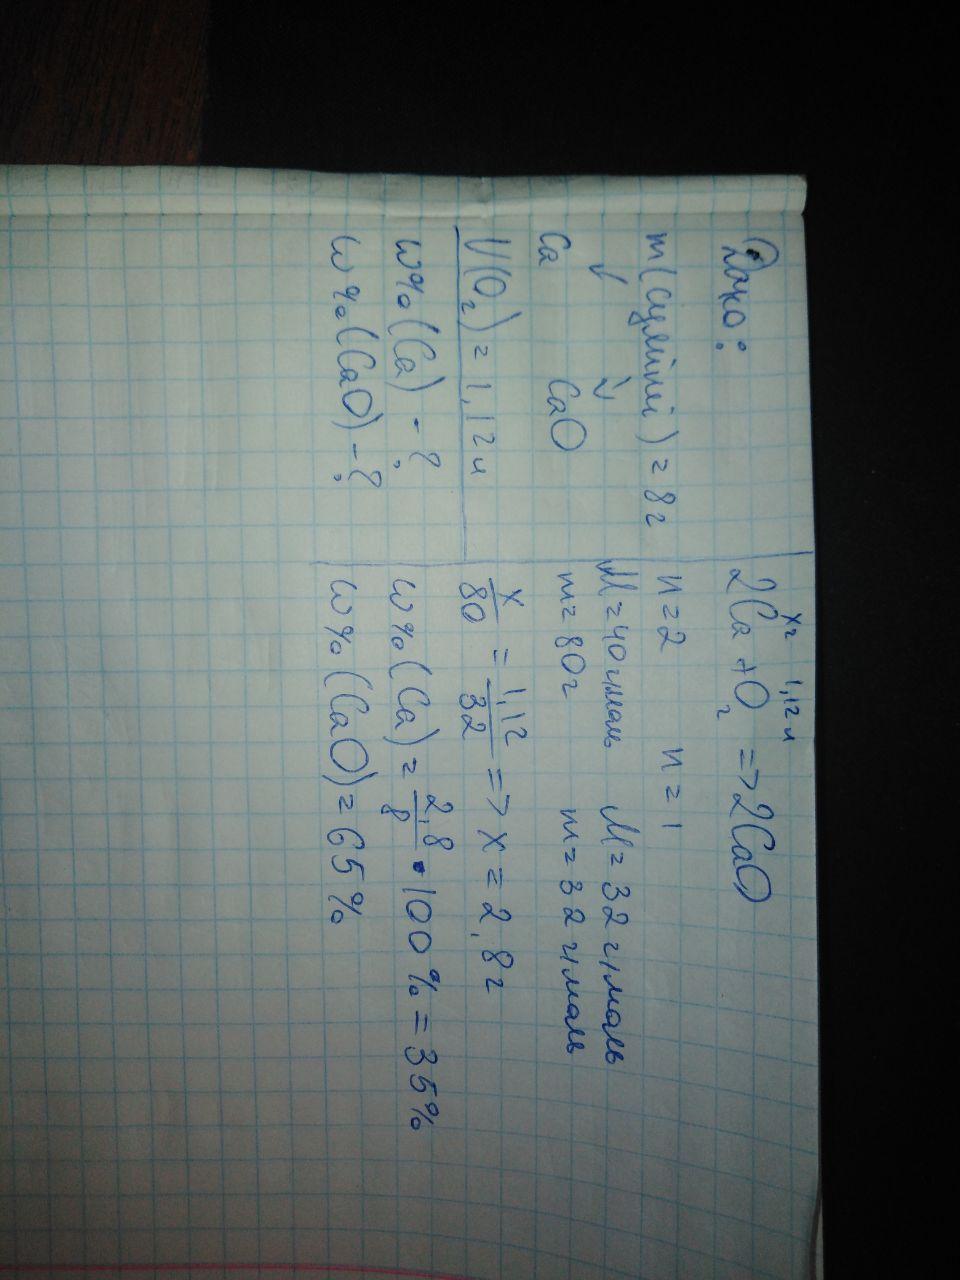 Дано:
m(суміші) = 8г
Ca CaO
V(O₂) = 1,12л
W%(Ca) - ?
W%(CaO) - ?
xг 1,12л
2Ca + O₂ => 2CaO
n=2 n=1
M=40г/моль M=32г/моль
m=80г m=32г/моль
x/80 = 1,12/32 => x = 2,8г
W%(Ca) = 2,8/8 · 100% = 35%
W%(CaO) = 65%